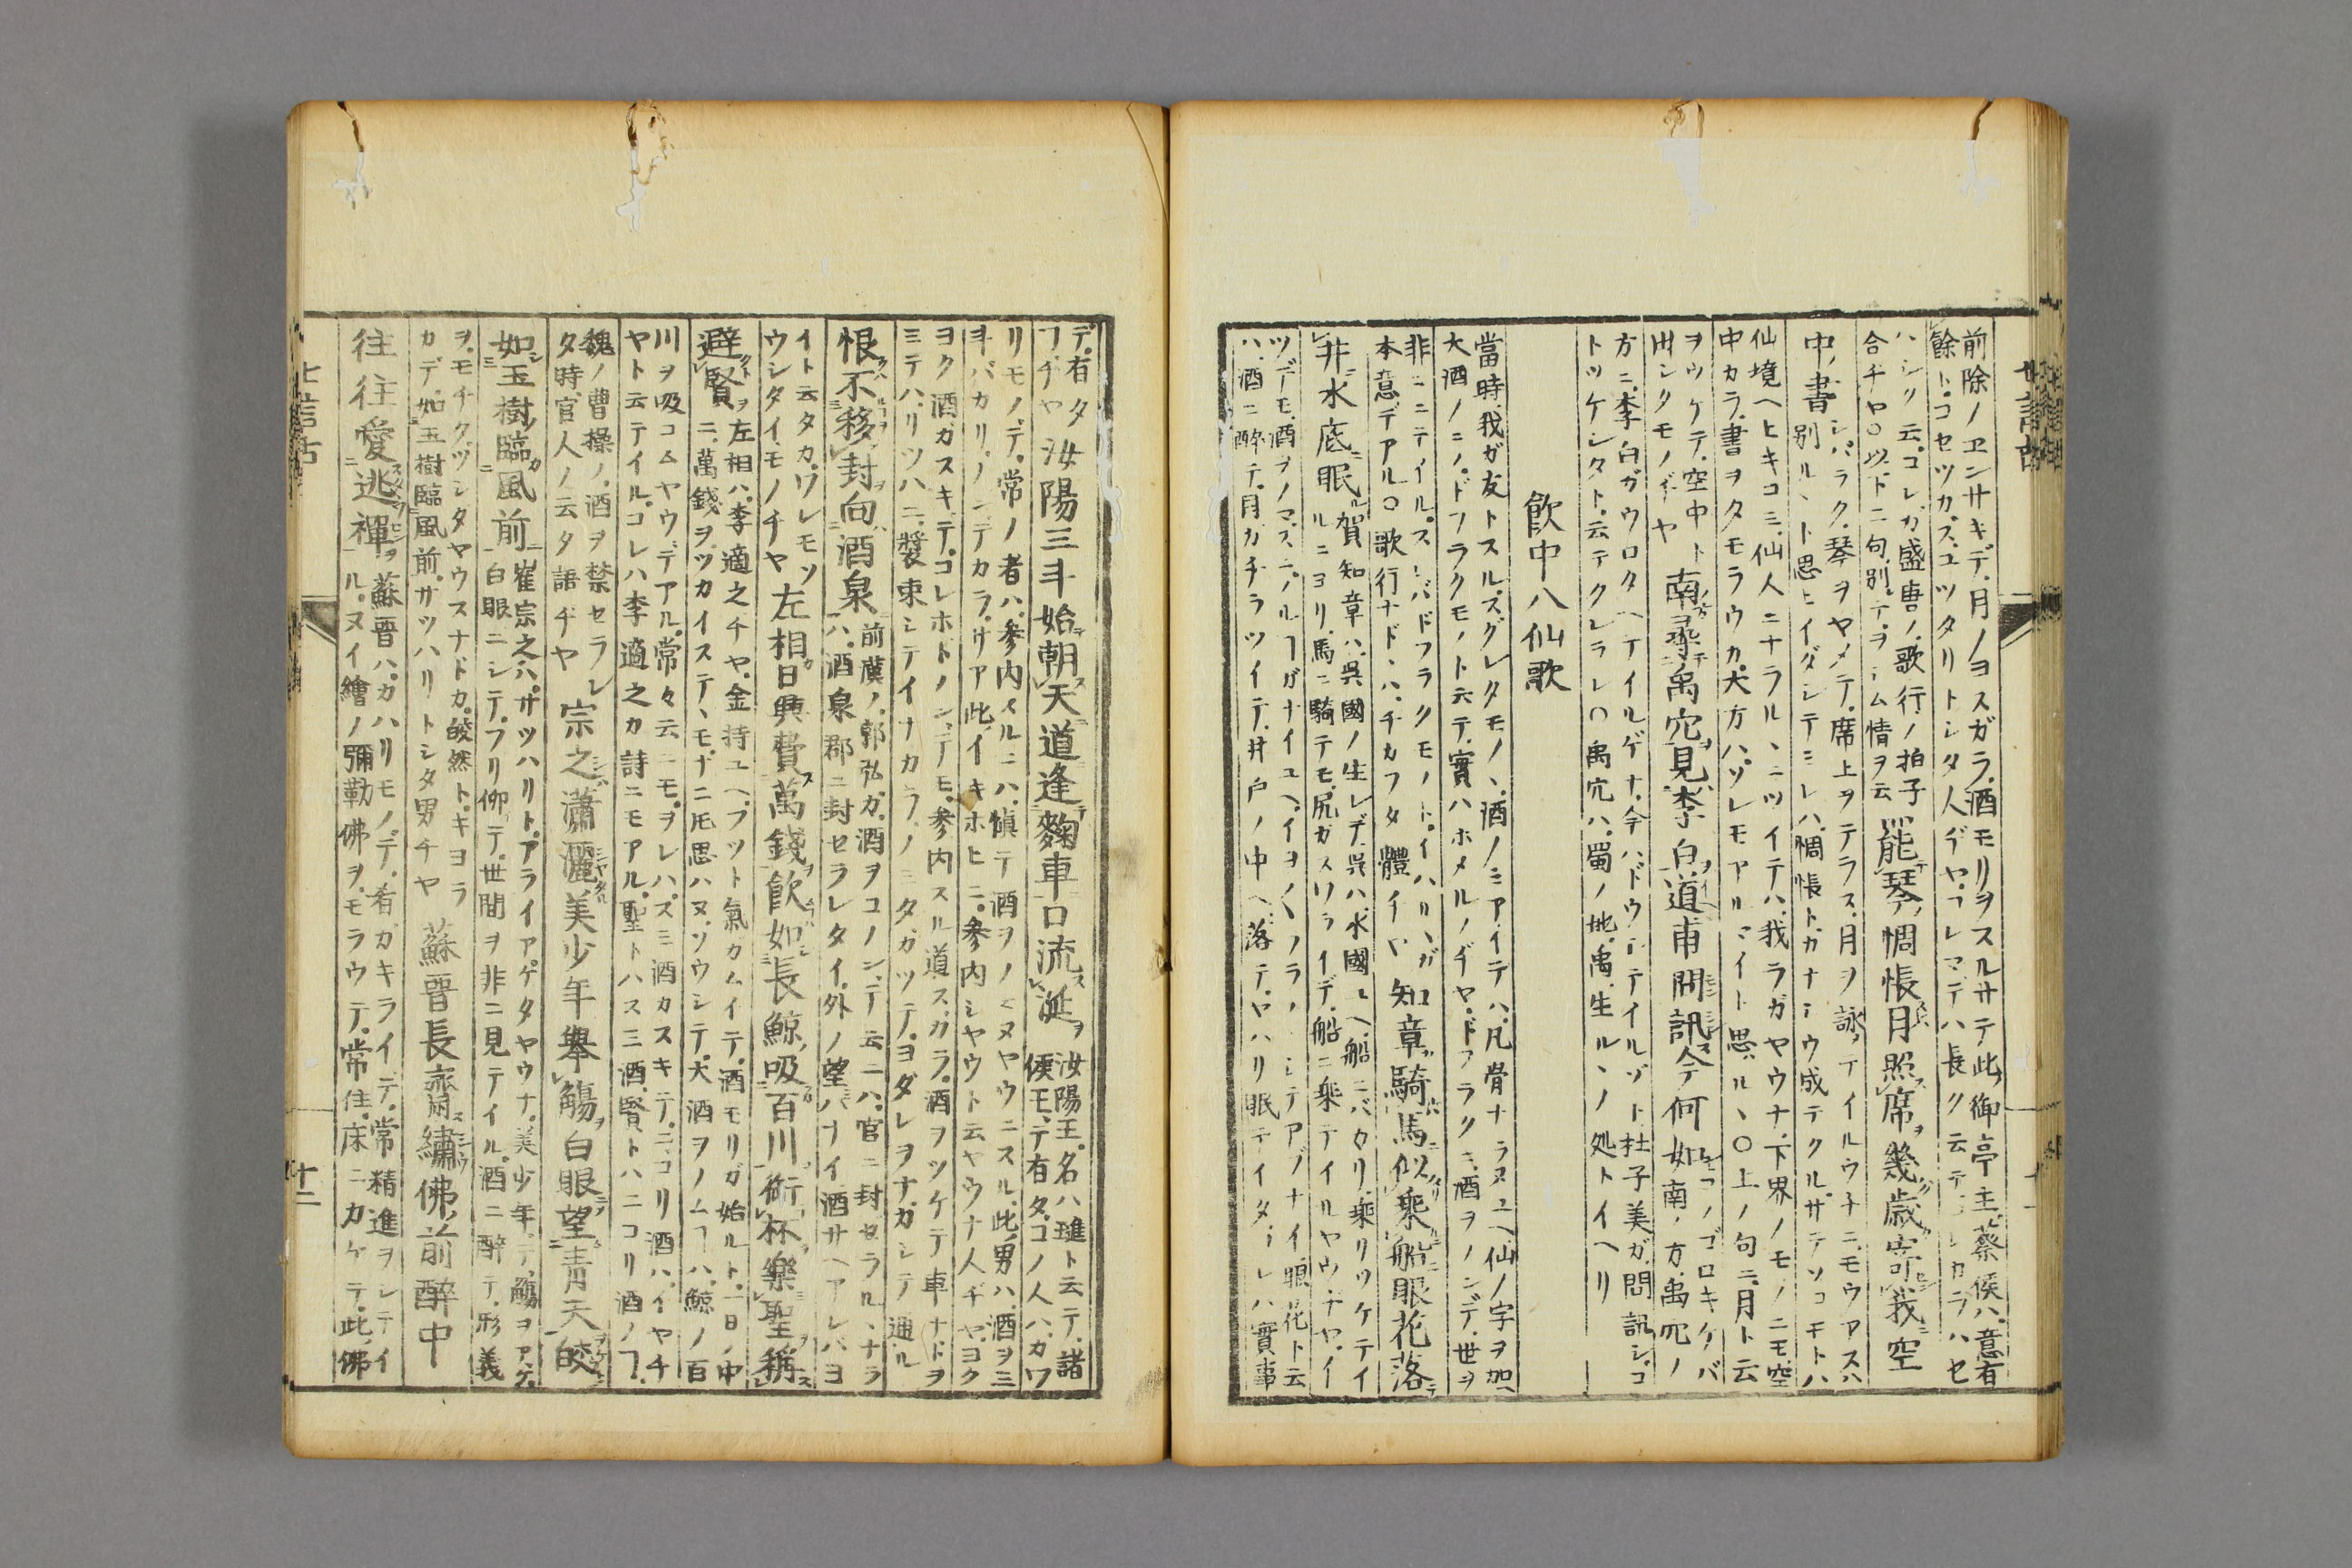 前除ノヱンサキデ、月ノヨスガラ、酒モリヲスルサテ此御亭主、蔡侯ハ、意有
餘ト、コセツカス、ユツタリトシタ人ヂヤ、コレマテハ長ク云テ
ハシリ云、コレガ盛唐ノ、歌行ノ拍子
合チヤ○以下ニ句、別テ、ヲシム情ヲ云
罷琴惆悵月照席幾歳寄我空
中書
シバラク、琴ヲヤメテ、席上ヲテラス、月ヲ詠テイルウチニ、モウアスハ
別ルヽト思ヒイダシテミレハ、惆悵ト、カナシウ成テクルサテソコモトハ
仙境ヘヒキコミ、仙人ニナラルヽニツイテハ、我ラガヤウナ、下界ノモノニモ、空
中カラ、書ヲタモラウカ、大方ハ、ソレモアルマイト思ルヽ○上ノ句ニ、月ト云
ヲウケテ、空中ト
南尋禹穴見李白道甫問訊今何如
コノゴロキケバ
南ノ方、禹穴ノ
方ニ、李白ガウロタヘテイルゲナ、今ハドウシテイルゾト杜子美ガ、問訊シ、コ
トツケシタト、云テクレラレ○禹穴ハ、蜀ノ地、禹生ルヽノ処トイヘリ
飲中八仙歌
當時、我ガ友トスル、スグレタモノヽ、酒ノミアイテハ、凡骨ナラヌユヘ仙ノ字ヲ加ヘ
大酒ノミノ、ドフラクモノト云テ、實ハホメルノヂヤ、ドフラクニ、酒ヲノンデ、世ヲ
非ニミテイル、スレバドフラクモノト、イハルヽガ
本意デアル○歌行ナドハ、チカフタ體チヤ
知章騎馬似乘船眼花落
井水底眠
賀知章ハ、呉國ノ生レデ、呉ハ水國ユヘ、船ニバカリ乘リツケテイ
ルニヨリ、馬ニ騎テモ、尻ガスワライデ、船ニ乘テイルヤウヂヤ、イ
ツデモ、酒ヲノマズニ、ノルヿガナイユヘ、イヨ〱フラ〱シテアブナイ眼花ト云
ハ、酒ニ醉テ、目ガチラツイテ、井戸ノ中ヘ落テ、ヤハリ眠テイタ、コレハ實事
デ、有タ
ヿヂヤ
汝陽三斗始朝天道逢麹車口流涎
汝陽王、名ハ璡ト云テ、諸
侯モ、テ有タ、コノ人ハ、カワ
リモノ、デ、常ノ者ハ、參内スルニハ、愼テ酒ヲノマヌヤウニスル、此男ハ、酒ヲ三
斗バカリ、ノンデカラ、サア此イキホヒニ、參内シヤウト云ヤウナ人ヂヤ、ヨク
ヨク酒ガスキデ、コレホトノンデモ、參内スル道スガラ、酒ヲツケテ車ナドヲ
ミテハ、リツハニ、裝束シテイナカラ、ノミタガツテ、ヨダレヲナガシテ通ル
恨不移封向酒泉
前漢ノ、郭弘ガ、酒ヲコノンデ云ニハ、官ニ封セラルヽナラ
ハ、酒泉郡ニ封セラレタイ、外ノ望ハナイ、酒サヘアレバヨ
イト云タカ、ワレモソ
ウシタイモノヂヤ
左相日興費萬錢飮如長鯨吸百川銜杯樂聖稱
避賢
左相ハ、李適之チヤ、金持ユヘ、フツト氣カムイテ、酒モリガ始ルト、一日ノ中
ニ、萬錢ヲ、ツカイステヽモ、ナニトモ思ハヌ、ソウシテ、大酒ヲノムヿハ、鯨ノ百
川ヲ吸コムヤウデアル、常々云ニモ、ヲレハ、スミ酒カスキテ、ニコリ酒ハ、イヤチ
ヤト云テイル、コレハ李適之カ詩ニモアル、聖トハスミ酒、賢トハニコリ酒ノヿ
魏ノ曹操ノ、酒ヲ禁セラレ
タ時、官人ノ云タ語ヂヤ
宗之瀟灑美少年舉觴白眼望青天皎
如玉樹臨風前
崔宗之ハ、サツハリト、アライアゲタヤウナ、美少年デ、觴ヲアゲ、
白眼ニシテ、フリ仰テ、世間ヲ非ニ見テイル、酒ニ醉テ、形義
ヲ、モチクヅシタヤウスナドカ、皎然ト、キヨラ
カデ、如玉樹臨風前、サツハリトシタ男チヤ
蘇晉長齋繡佛前醉中
往往愛逃禪
蘇晉ハ、カハリモノデ、肴ガキライデ、常精進ヲシテイ
ル、ヌイ繪ノ彌勒佛ヲ、モラウテ、常住、床ニカケテ、此佛
十二